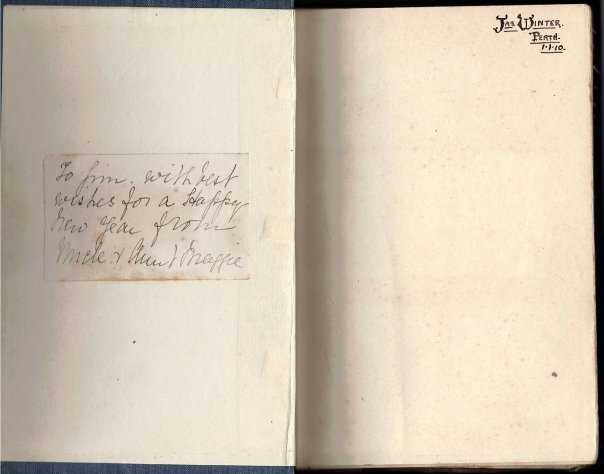 To Jim. with best
wishes for a Happy
New Year from
Uncle & Aunt Maggie
JAS. WINTER.
PERTH.
1.1.10.